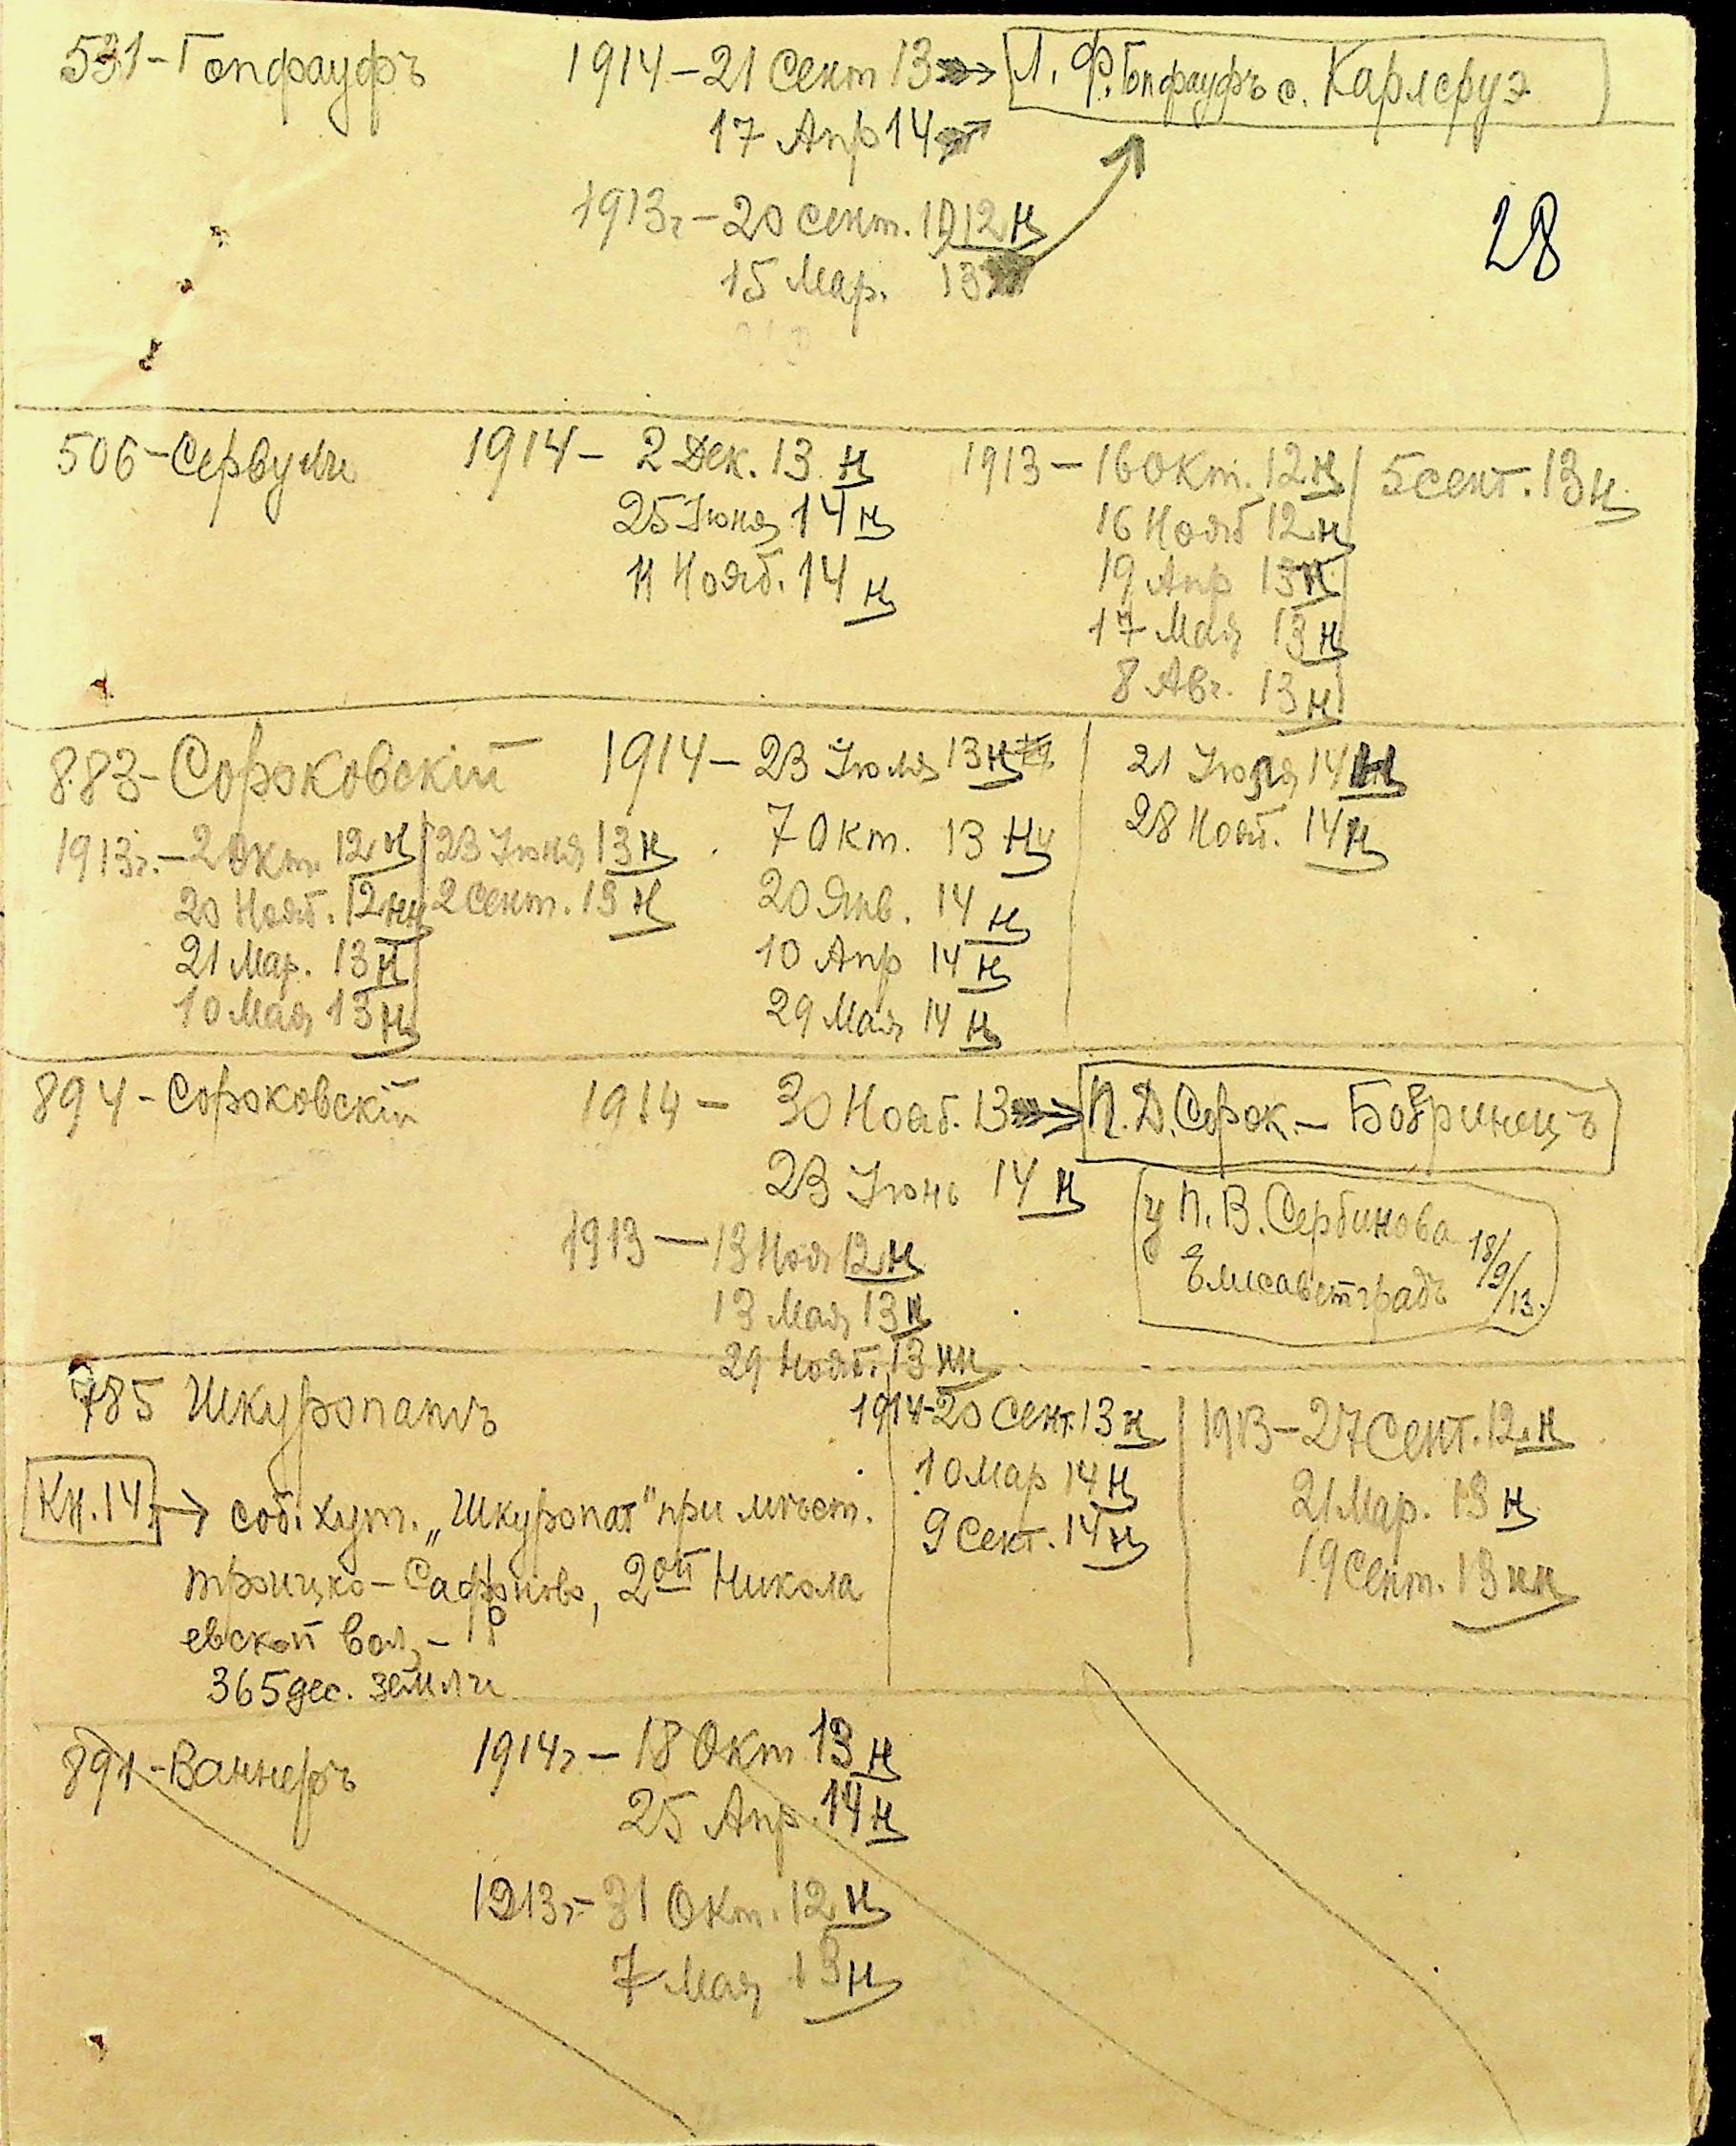 531-Гопфауфъ 1914-21 Сент 13 → Л. Ф. Гопфауфъ с. Карлсруэ
17 Апр 14
1913г-20 Сент. 1912 н
15 Мар. 13
28
506-Сервули 1914- 2 Дек. 13 н 1913-16 Окт. 12 н 5 сент. 13 н
25 Іюня 14 н 16 Нояб 12 н
11 Нояб. 14 н 19 Апр 13 н
17 Мая 13 н
8 Авг. 13 н
883-Сороковскій 1914- 23 Іюля 13 н 21 Іюля 14 н
1913г.-2 Окт. 12 н 23 Іюня 13 н 7 Окт. 13 нч 28 Нояб. 14 н
20 Нояб. 12 нч 2 Сент. 13 н 20 Янв. 14 н
21 Мар. 13 н 10 Апр 14 н
10 Мая 13 н 29 Мая 14 н
894-Сороковскій 1914- 30 Нояб. 13 → П. Д. Сорок.- Бобринецъ
23 Іюнь 14 н у П. В. Сербинова 18/9/13.
1913-13 Ноя 12 н Елисаветградъ
13 Мая 13 н
29 Нояб. 13 нн
785 Шкуропатъ 1914-20 Сент. 13 н 1913-27 Сент. 12 н
Кн. 14 → соб. хут. „Шкуропат" при мѣст. 10 Мар 14 н 21 Мар. 13 н
троицко-Сафоново, 2ой Никола 9 Сент. 14 н 19 Сент. 13 нн
евской вол,-
365 дес. земли
891-Ваннеръ 1914г-18 Окт 13 н
25 Апр. 14 н
1913г-31 Окт. 12 н
7 Мая 13 н